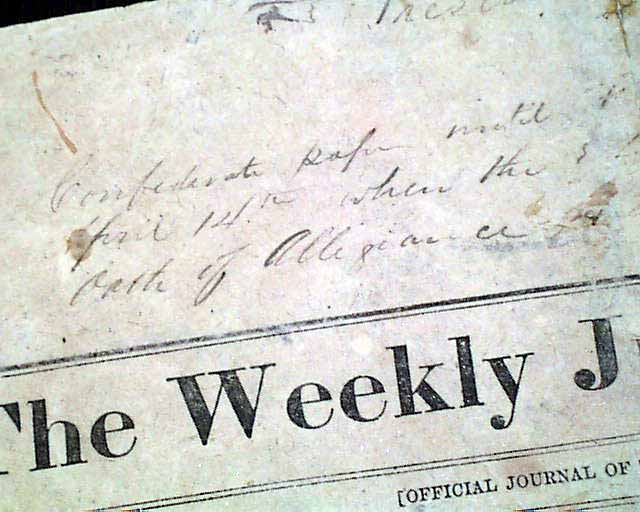 Confederate paper until
April 14th when the
Oath of Allegiance
The Weekly J
[OFFICIAL JOURNAL OF